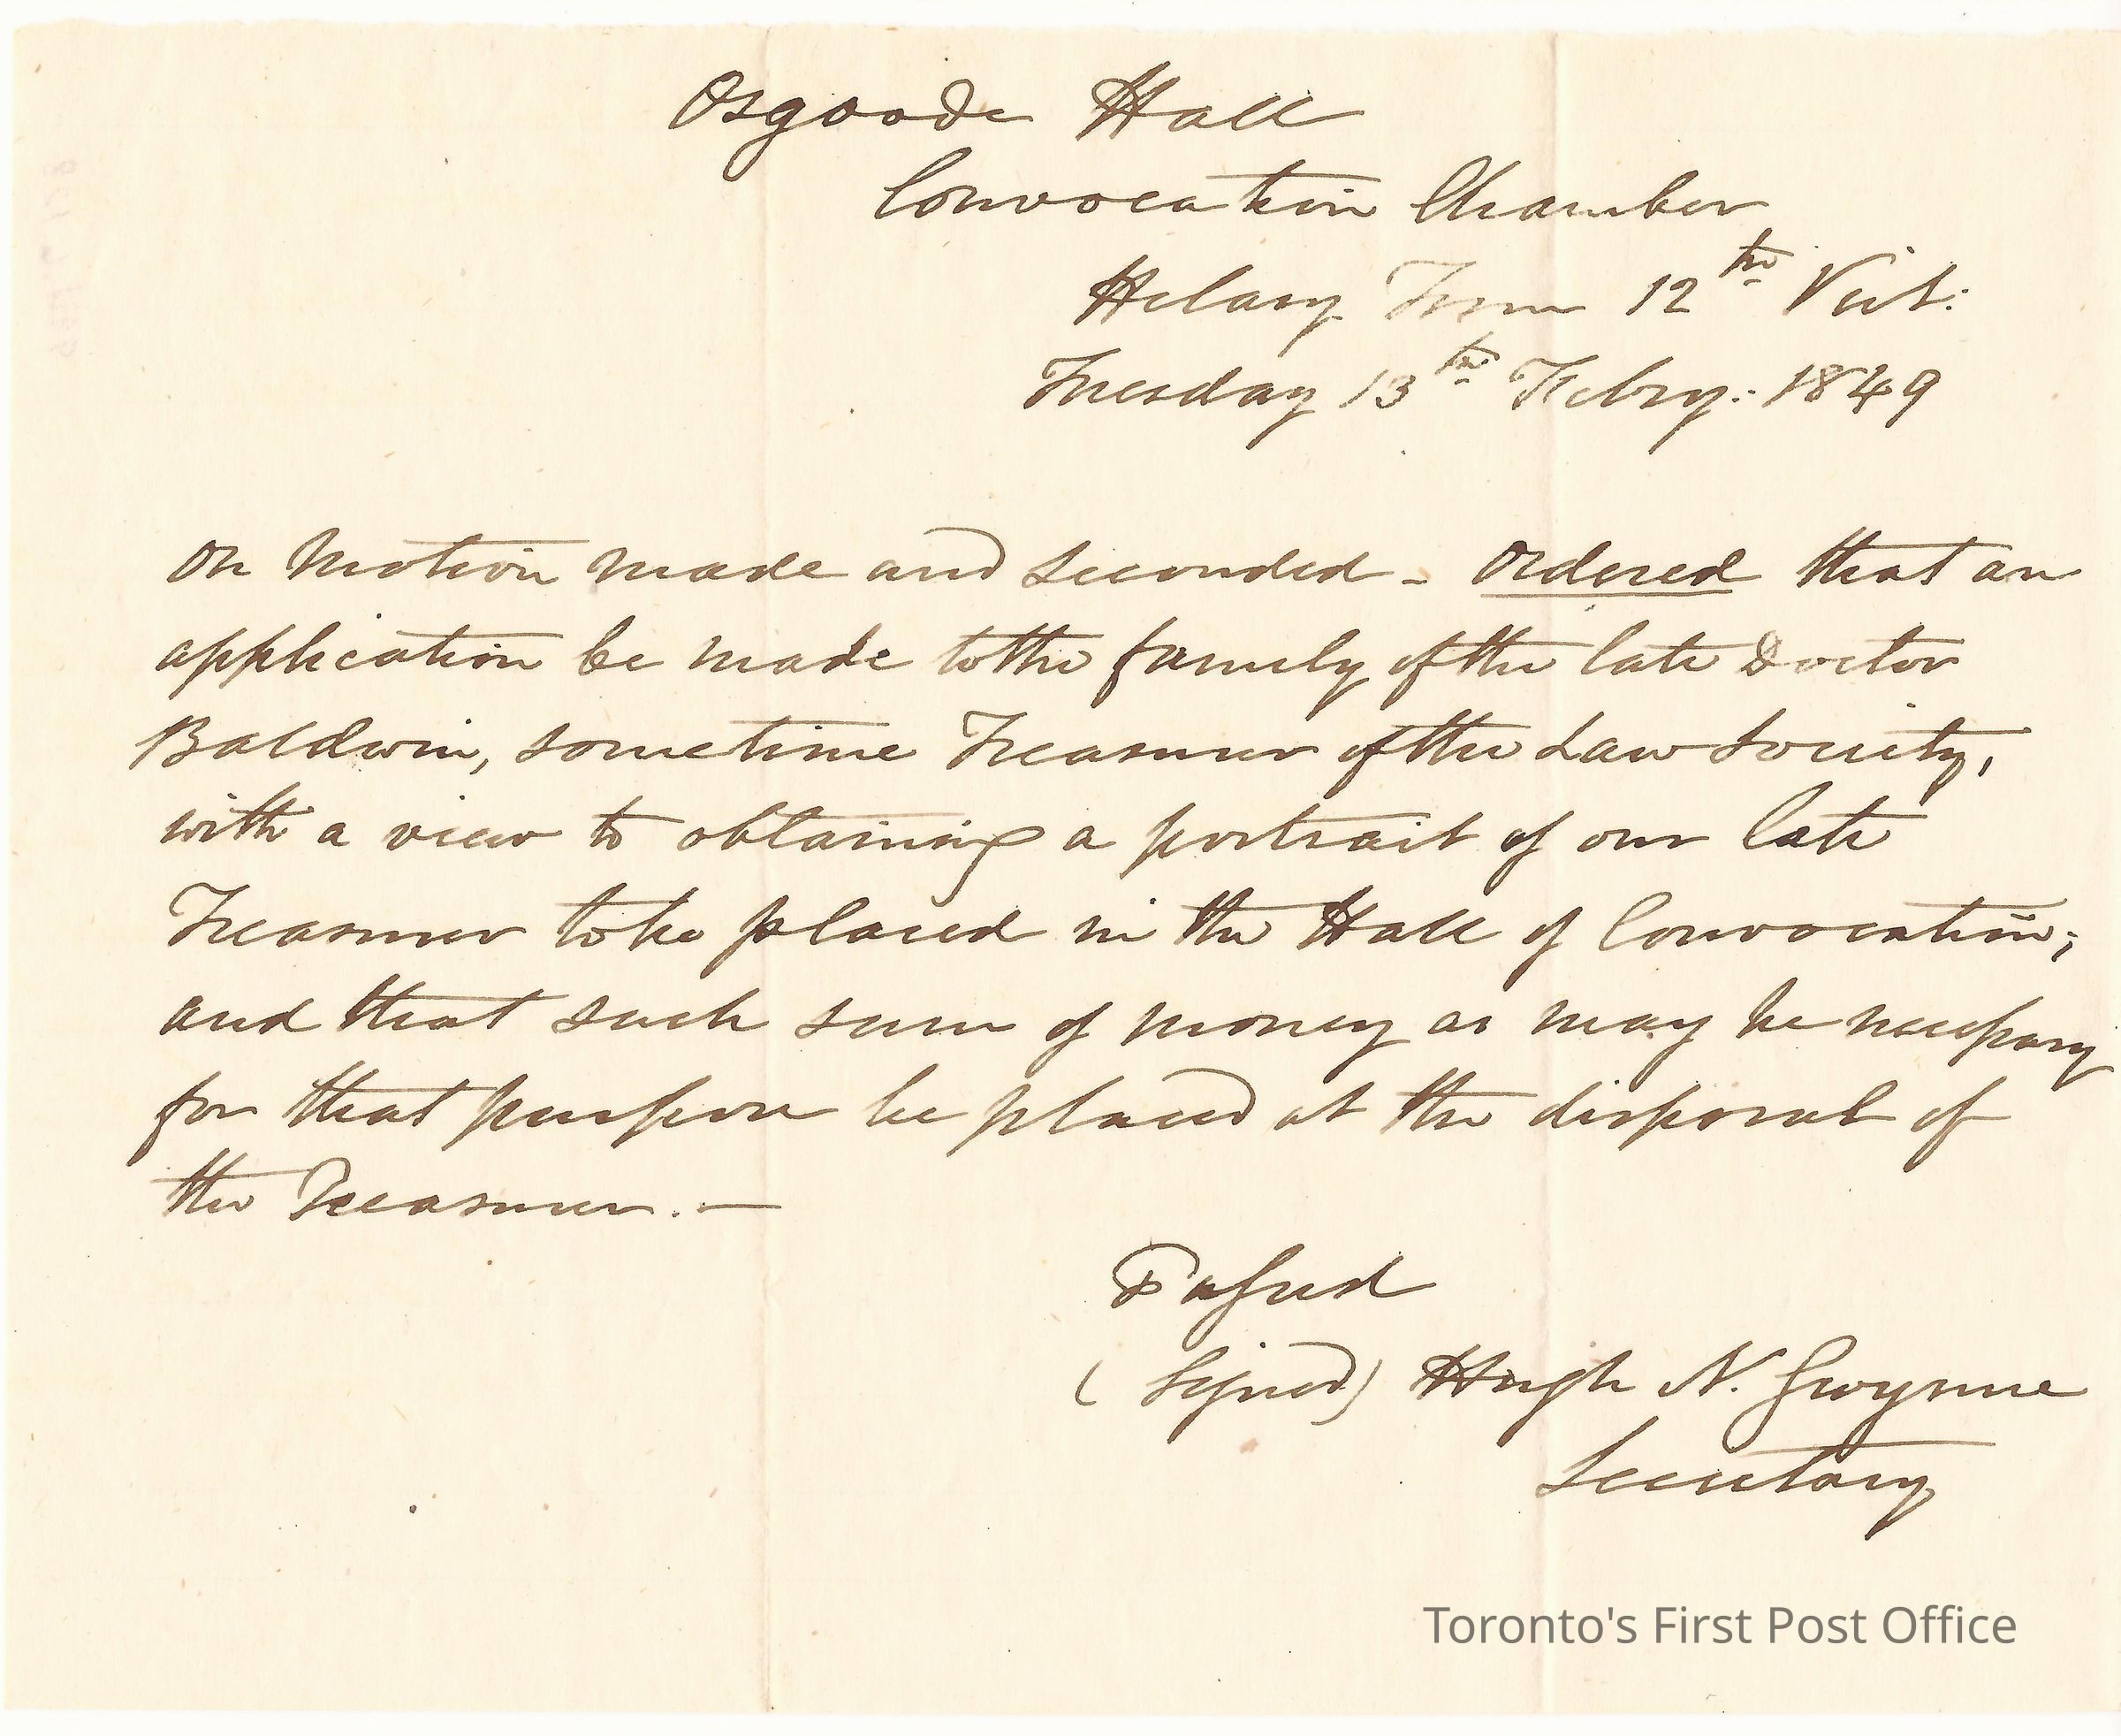 Osgoode Hall
Convocation Chamber
Hilary Term 12th Vict:
Tuesday 13th Febry: 1849
On motion made and seconded - Ordered that an
application be made to the family of the late Doctor
Baldwin, sometime Treasurer of the Law Society,
with a view to obtaining a portrait of our late
Treasurer to be placed in the Hall of Convocation;
and that such sum of money as may be necessary
for that purpose be placed at the disposal of
the Treasurer. —
Passed
(Signed) Hugh N. Gwynne
Secretary
Toronto's First Post Office